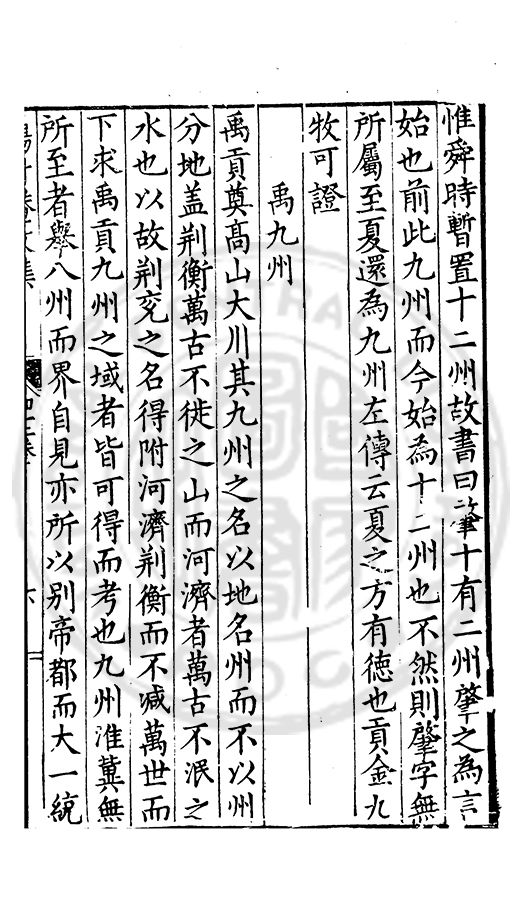 惟舜時暫置十二州故書曰肇十有二州肇之為言
始也前此九州而今始為十二州也不然則肇字無
所屬至夏還為九州左傳云夏之方有徳也貢金九
牧可證
禹九州
禹貢奠髙山大川其九州之名以地名州而不以州
分地盖荆衡萬古不徙之山而河濟者萬古不泯之
水也以故荆兖之名得附河濟荆衡而不减萬世而
下求禹貢九州之域者皆可得而考也九州淮兾無
所至者舉八州而界自見亦所以别帝都而大一統